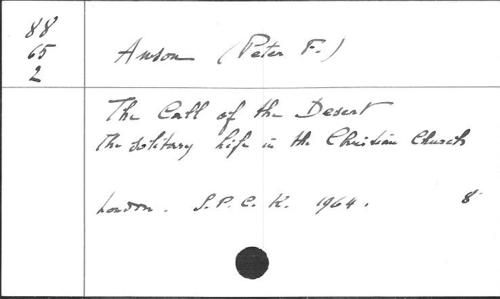 88
65
2
Anson (Peter F.)
The Call of the Desert
The solitary life in the Christian Church
London. S.P.C.K. 1964. 8